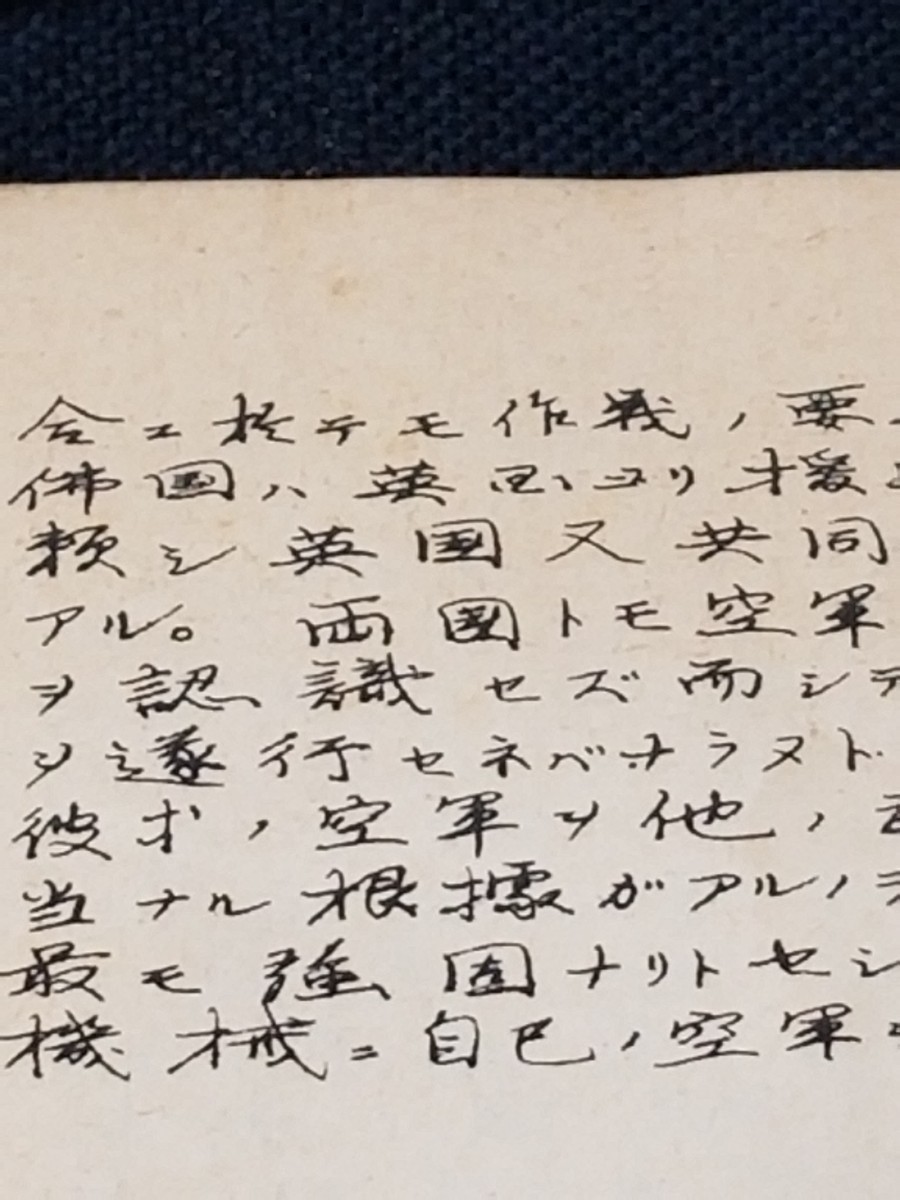 合ニ於テモ作戦ノ要
佛國ハ英国ヨリ援
頼シ英国又共同
アル。両國トモ空軍
ヲ認識セズ而シテ
ヲ遂行セネバナラヌト
彼才ノ空軍ヲ他ノ
当ナル根據ガアルノデ
最モ強固ナリトセシ
機械ニ自己ノ空軍